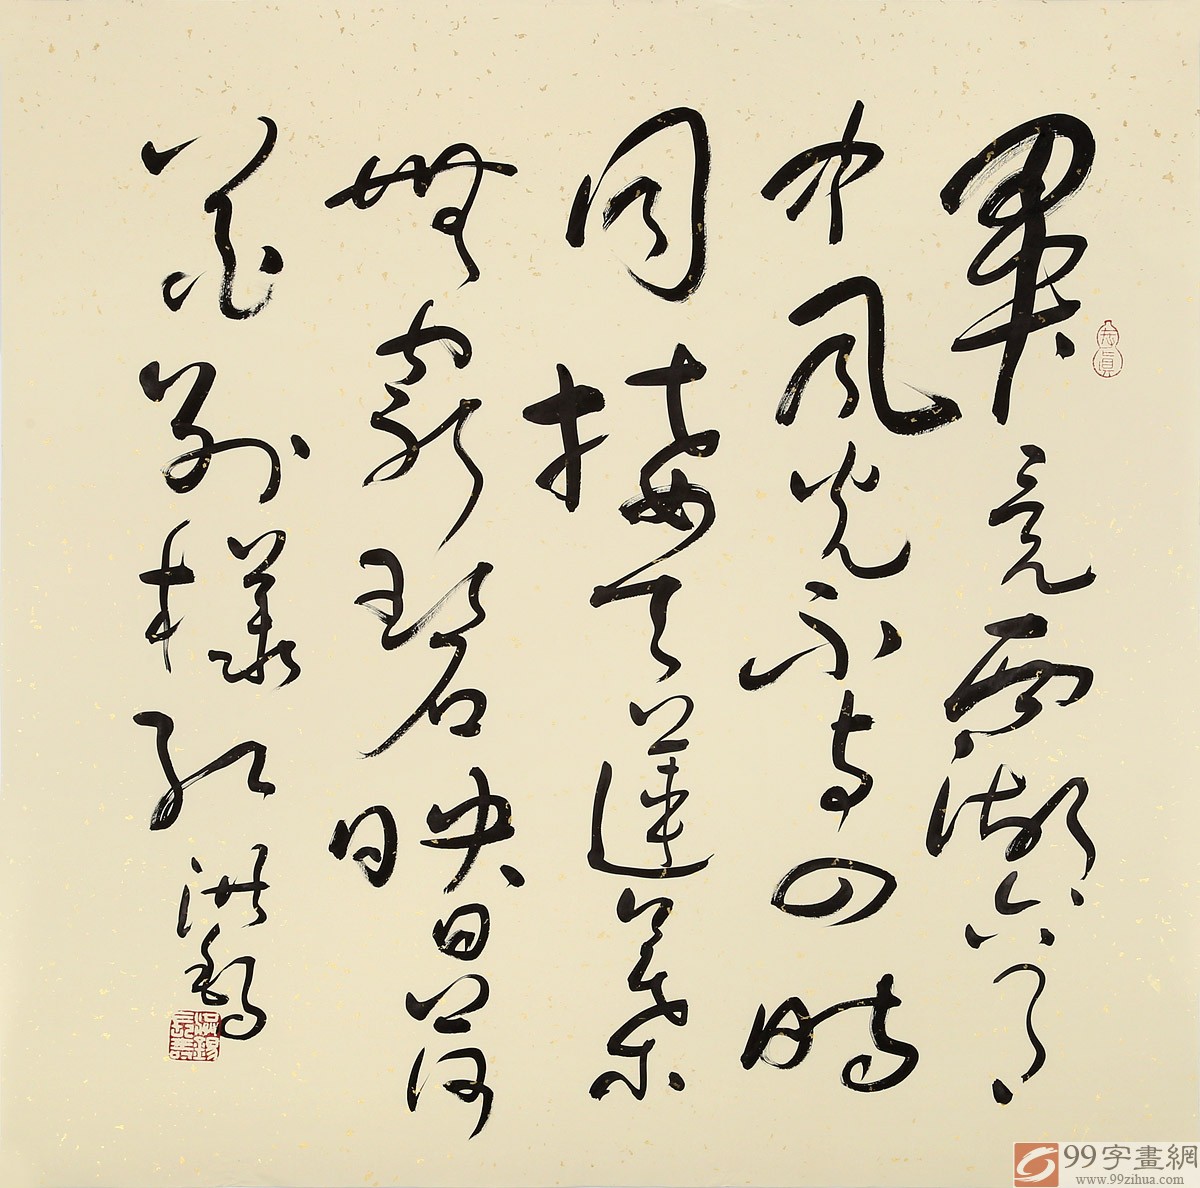 畢竟西湖六月
中風光不与四時
同接天蓮葉
無窮碧映日荷
花別樣紅 洪
99字畫網
www.99zihua.com